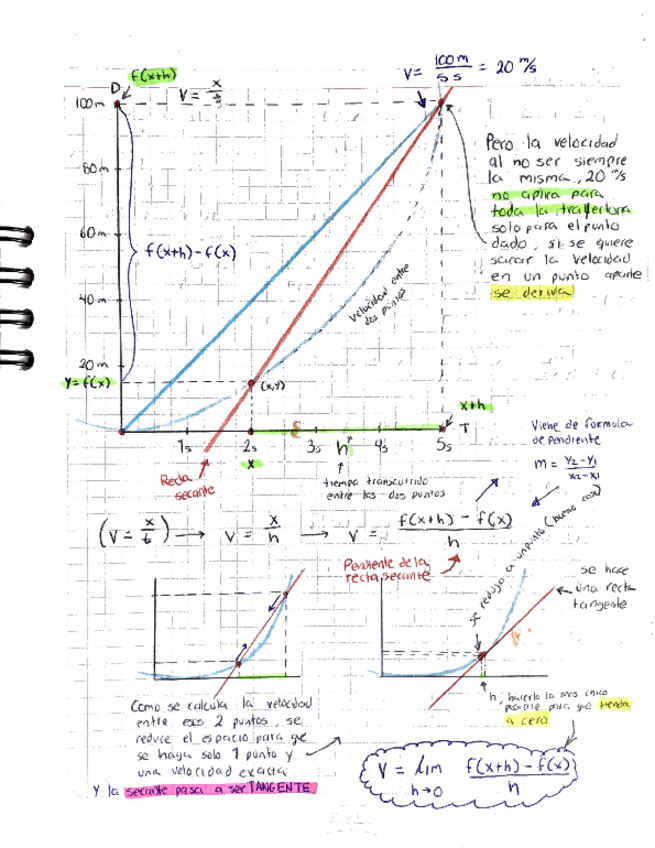 f(x+h)
D
V = x/t
V = 100m/5s = 20 m/s
100m
80m
60m
40m
20m
f(x+h) - f(x)
Y = f(x)
(x,y)
Velocidad entre
dos puntos
Pero la velocidad
al no ser siempre
la misma, 20 m/s
no aplica para
toda la trayectoria
solo para el punto
dado, si se quiere
sacar la velocidad
en un punto aparte
se deriva
x+h
T
1s 2s 3s h 4s 5s
x
Recta
secante
tiempo transcurrido
entre los dos puntos
Viene de formula
de pendiente
m = Y2-Y1/X2-X1
(V = x/t) → V = x/h → V = f(x+h) - f(x)/h
Pendiente de la
recta secante
se redujo a un punto (bueno casi)
se hace
una recta
tangente
h, hacerlo lo mas chico
posible para que tienda
a cero
Como se calcula la velocidad
entre esos 2 puntos, se
reduce el espacio para qe
se haga solo 1 punto y
una velocidad exacta
Y la secante pasa a ser TANGENTE
V = lim h→0 f(x+h) - f(x)/h